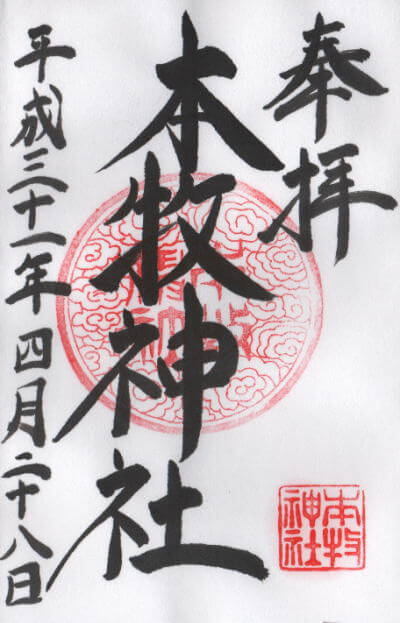 奉拝
本牧神社
平成三十一年四月二十八日
本牧
神社